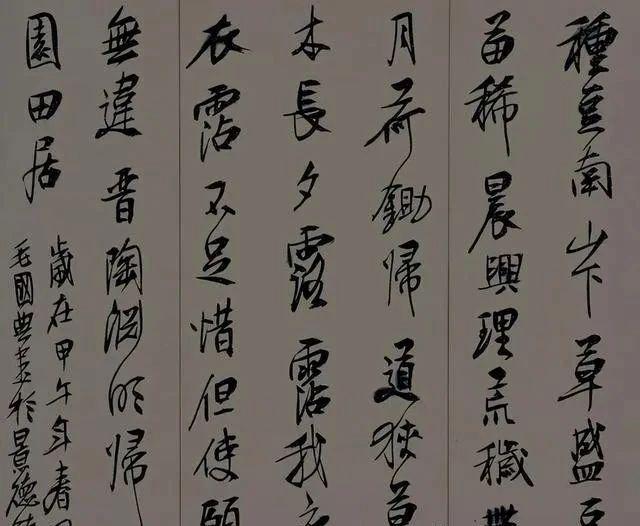 種豆南山下草盛豆
苗稀晨興理荒穢帶
月荷鋤歸道狹草
木長夕露霑我衣
衣霑不足惜但使願
無違晉陶淵明歸
園田居
歲在甲午年春
毛國典書於景德